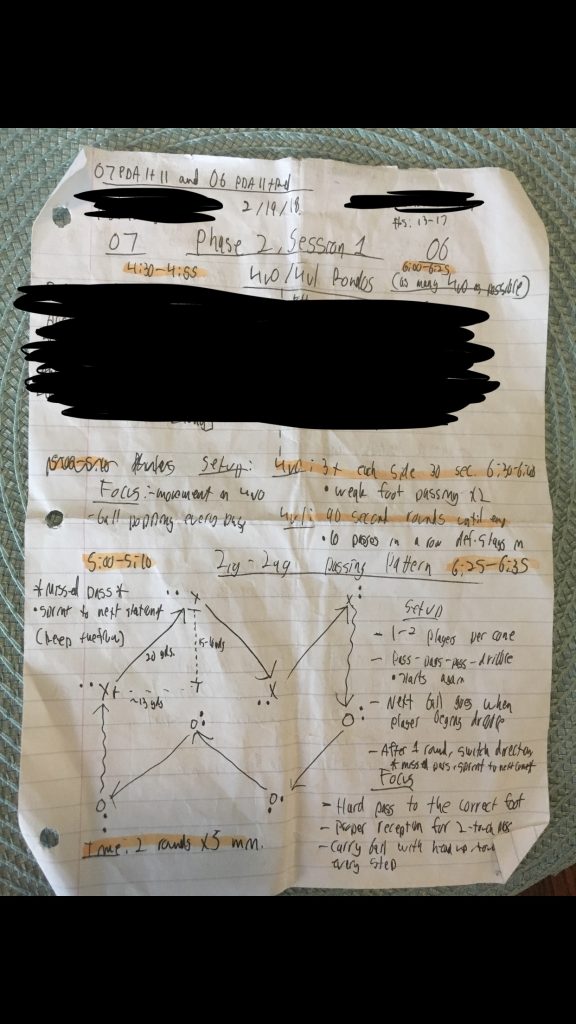 07 PDA I + II and 06 PDA II +
2/19/18
#s: 13-17
07 Phase 2, Session 1 06
4:30-4:55 4v0/4v1 Rondos 6:00-6:25 (as many 4v0 as possible)
Setup: 4v0: 3x each side 30 sec.
Focus: -movement in 4v0 • weak foot passing x2
-ball popping every 4v1: 90 second rounds until end
• 6 passes in a row def. stays in
5:00-5:10 Zig-Zag Passing Pattern 6:25-6:35
*missed pass*
• sprint to next station
(keep the flow)
X
X
20 yds.
X+
~13 yds
+
X
O
O
O
O
Setup
- 1-2 players per cone
- pass-pass-pass-dribble
• starts again
- Next ball goes when
player begins dribble
- After 1 round, switch direction
* missed pass, sprint to next
Focus
- Hard pass to the correct foot
- Proper reception for 2-touch pass
- Carry ball with head up, touch
every step
Time: 2 rounds x 5 min.